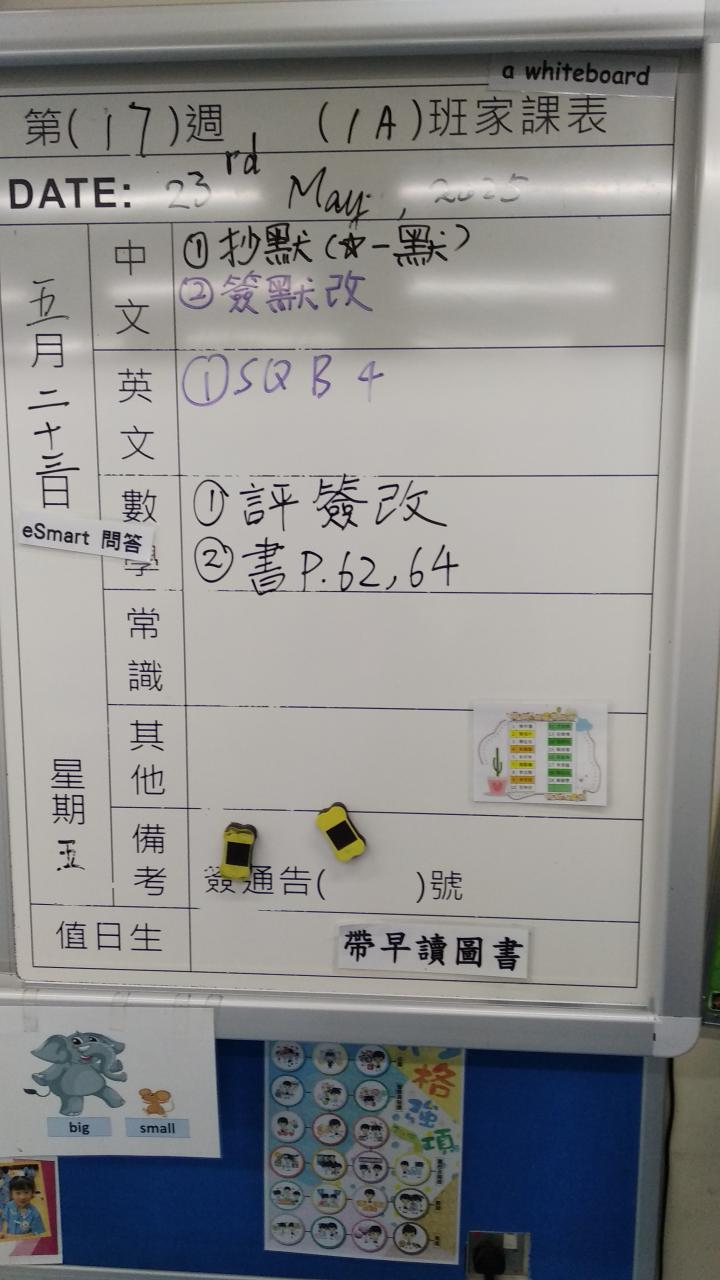 a whiteboard
第(17)週 (1A)班家課表
DATE: 23rd May, 2025
五月二十三日
星期五
中文
①抄默(☆一默)
②簽默改
英文
①SQB4
數學
①評簽改
②書P.62,64
eSmart 問答
常識
其他
備考
簽通告( )號
值日生
帶早讀圖書
big
small
格
強
項